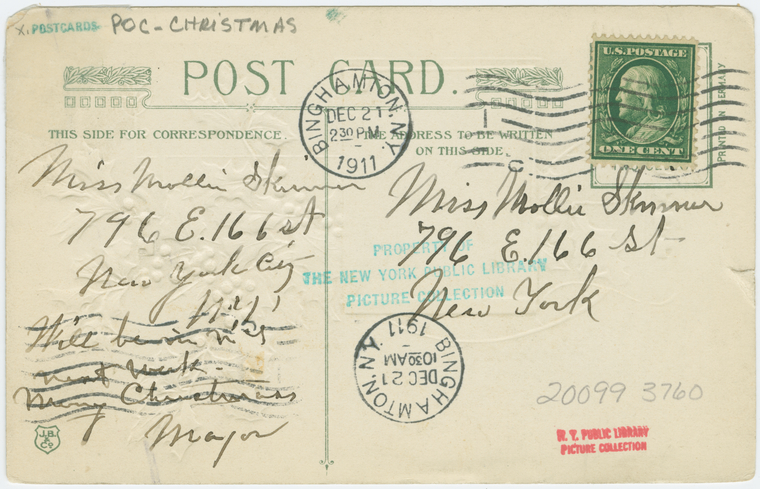 X. POSTCARDS POC-CHRISTMAS
POST CARD.
THIS SIDE FOR CORRESPONDENCE.
THE ADDRESS TO BE WRITTEN
ON THIS SIDE
BINGHAMTON, N.Y.
DEC 21
2 30 PM
1911
U.S. POSTAGE
ONE CENT
PRINTED IN GERMANY
Miss Mollie Skinner
796 E. 166 st
New York City
N.Y.
Will be in N.Y.
next week.
Merry Christmas
Mayor
Miss Mollie Skinner
796 E. 166 St
New York
PROPERTY OF
THE NEW YORK PUBLIC LIBRARY
PICTURE COLLECTION
BINGHAMTON, N.Y.
DEC 21
10 30 AM
1911
20099 3760
J.B.
& Co
N. Y. PUBLIC LIBRARY
PICTURE COLLECTION